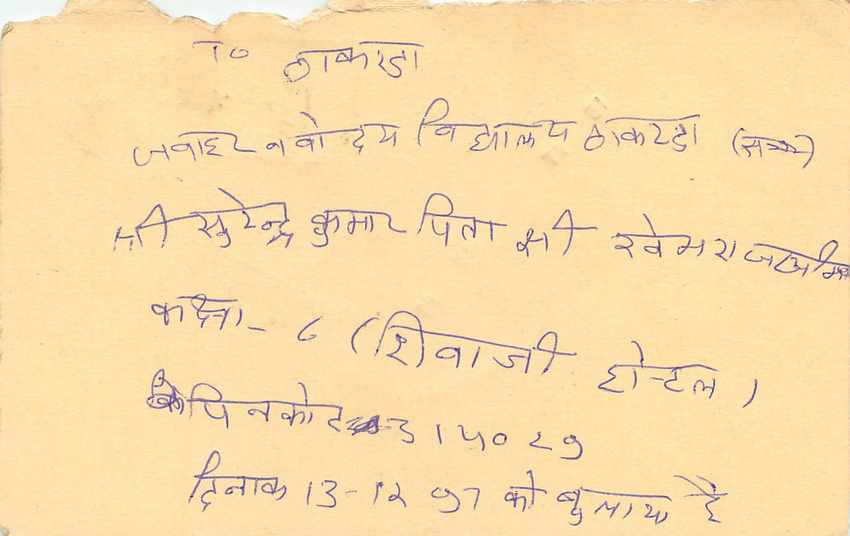 To ठाकरडा
जवाहर नवोदय विद्यालय ठाकरडा
श्री सुरेन्द्र कुमार पिता श्री खेमराज जी
कक्षा - ८ (शिवाजी होटल)
पिनकोट 314029
दिनाक 13-12 97 को बुलाया है